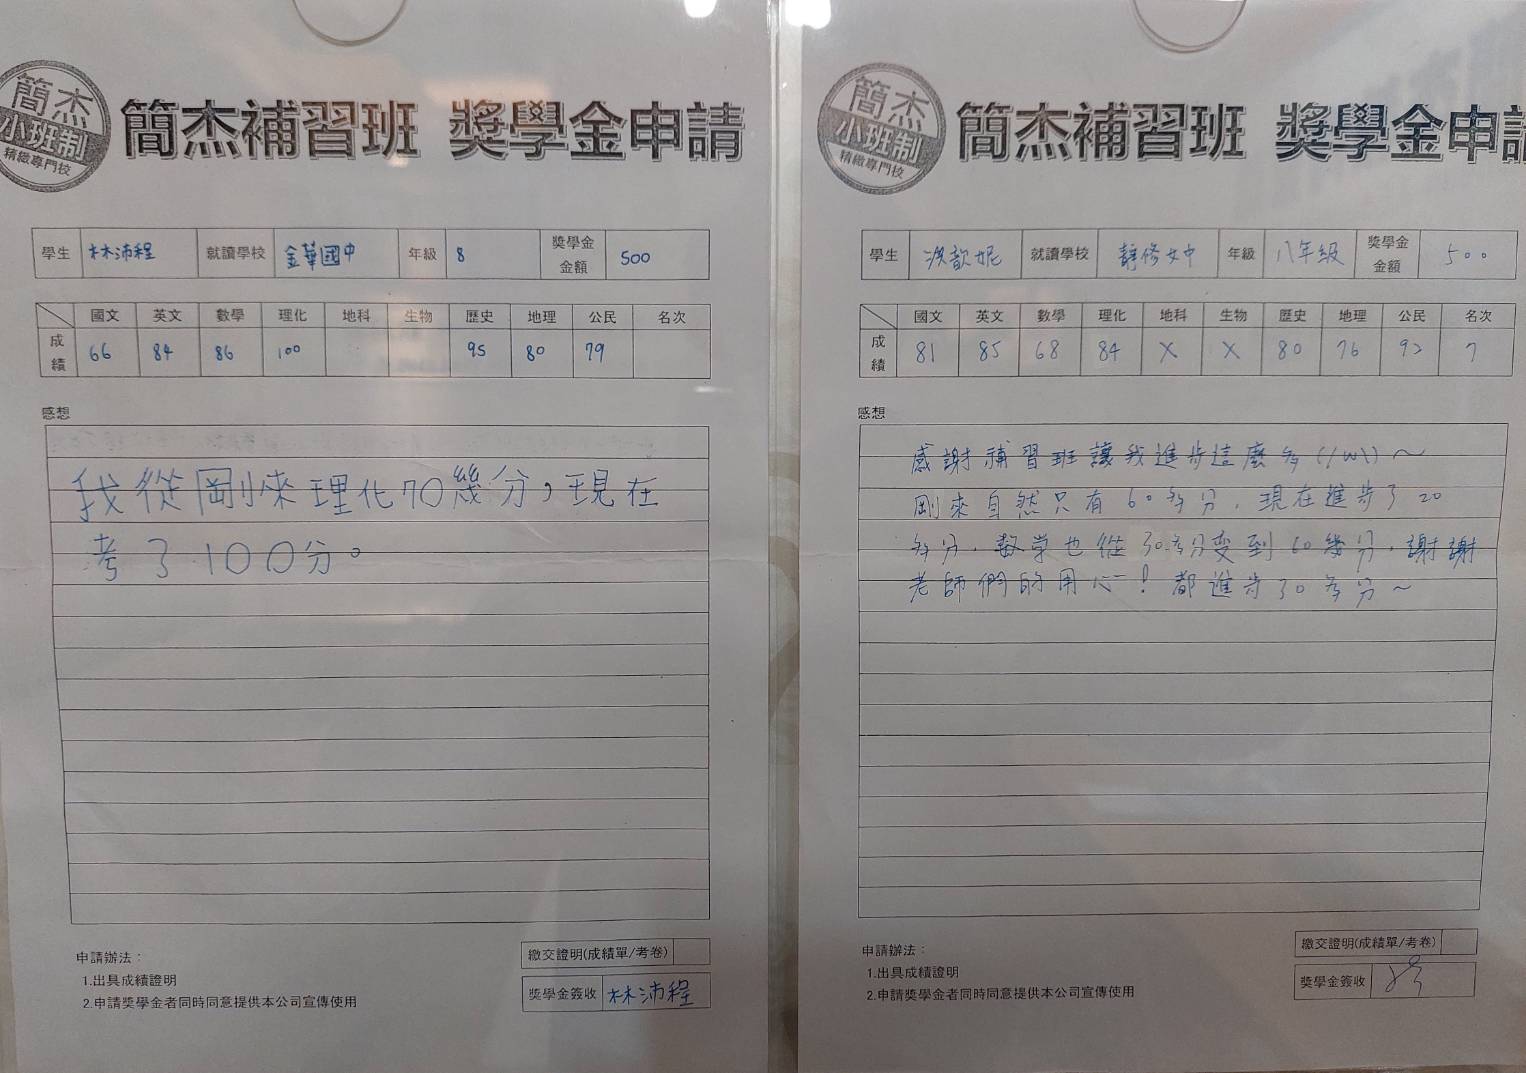 簡杰
小班制
精緻專門校
簡杰補習班 獎學金申請
學生 林沛程 就讀學校 金華國中 年級 8 獎學金金額 500
國文 英文 數學 理化 地科 生物 歷史 地理 公民 名次
成績 66 84 86 100 95 80 79
感想
我從剛來理化70幾分，現在
考了100分。
申請辦法：
1.出具成績證明
2.申請獎學金者同時同意提供本公司宣傳使用
繳交證明(成績單/考卷)
獎學金簽收 林沛程
簡杰
小班制
精緻專門校
簡杰補習班 獎學金申請
學生 洪歆妮 就讀學校 靜修女中 年級 八年級 獎學金金額 500
國文 英文 數學 理化 地科 生物 歷史 地理 公民 名次
成績 81 85 68 84 X X 80 76 92 7
感想
感謝補習班讓我進步這麼多(/w\)～
剛來自然只有60多分，現在進步了20
多分，數学也從30多分変到60幾分，謝謝
老師們的用心！都進步30多分～
申請辦法：
1.出具成績證明
2.申請獎學金者同時同意提供本公司宣傳使用
繳交證明(成績單/考卷)
獎學金簽收